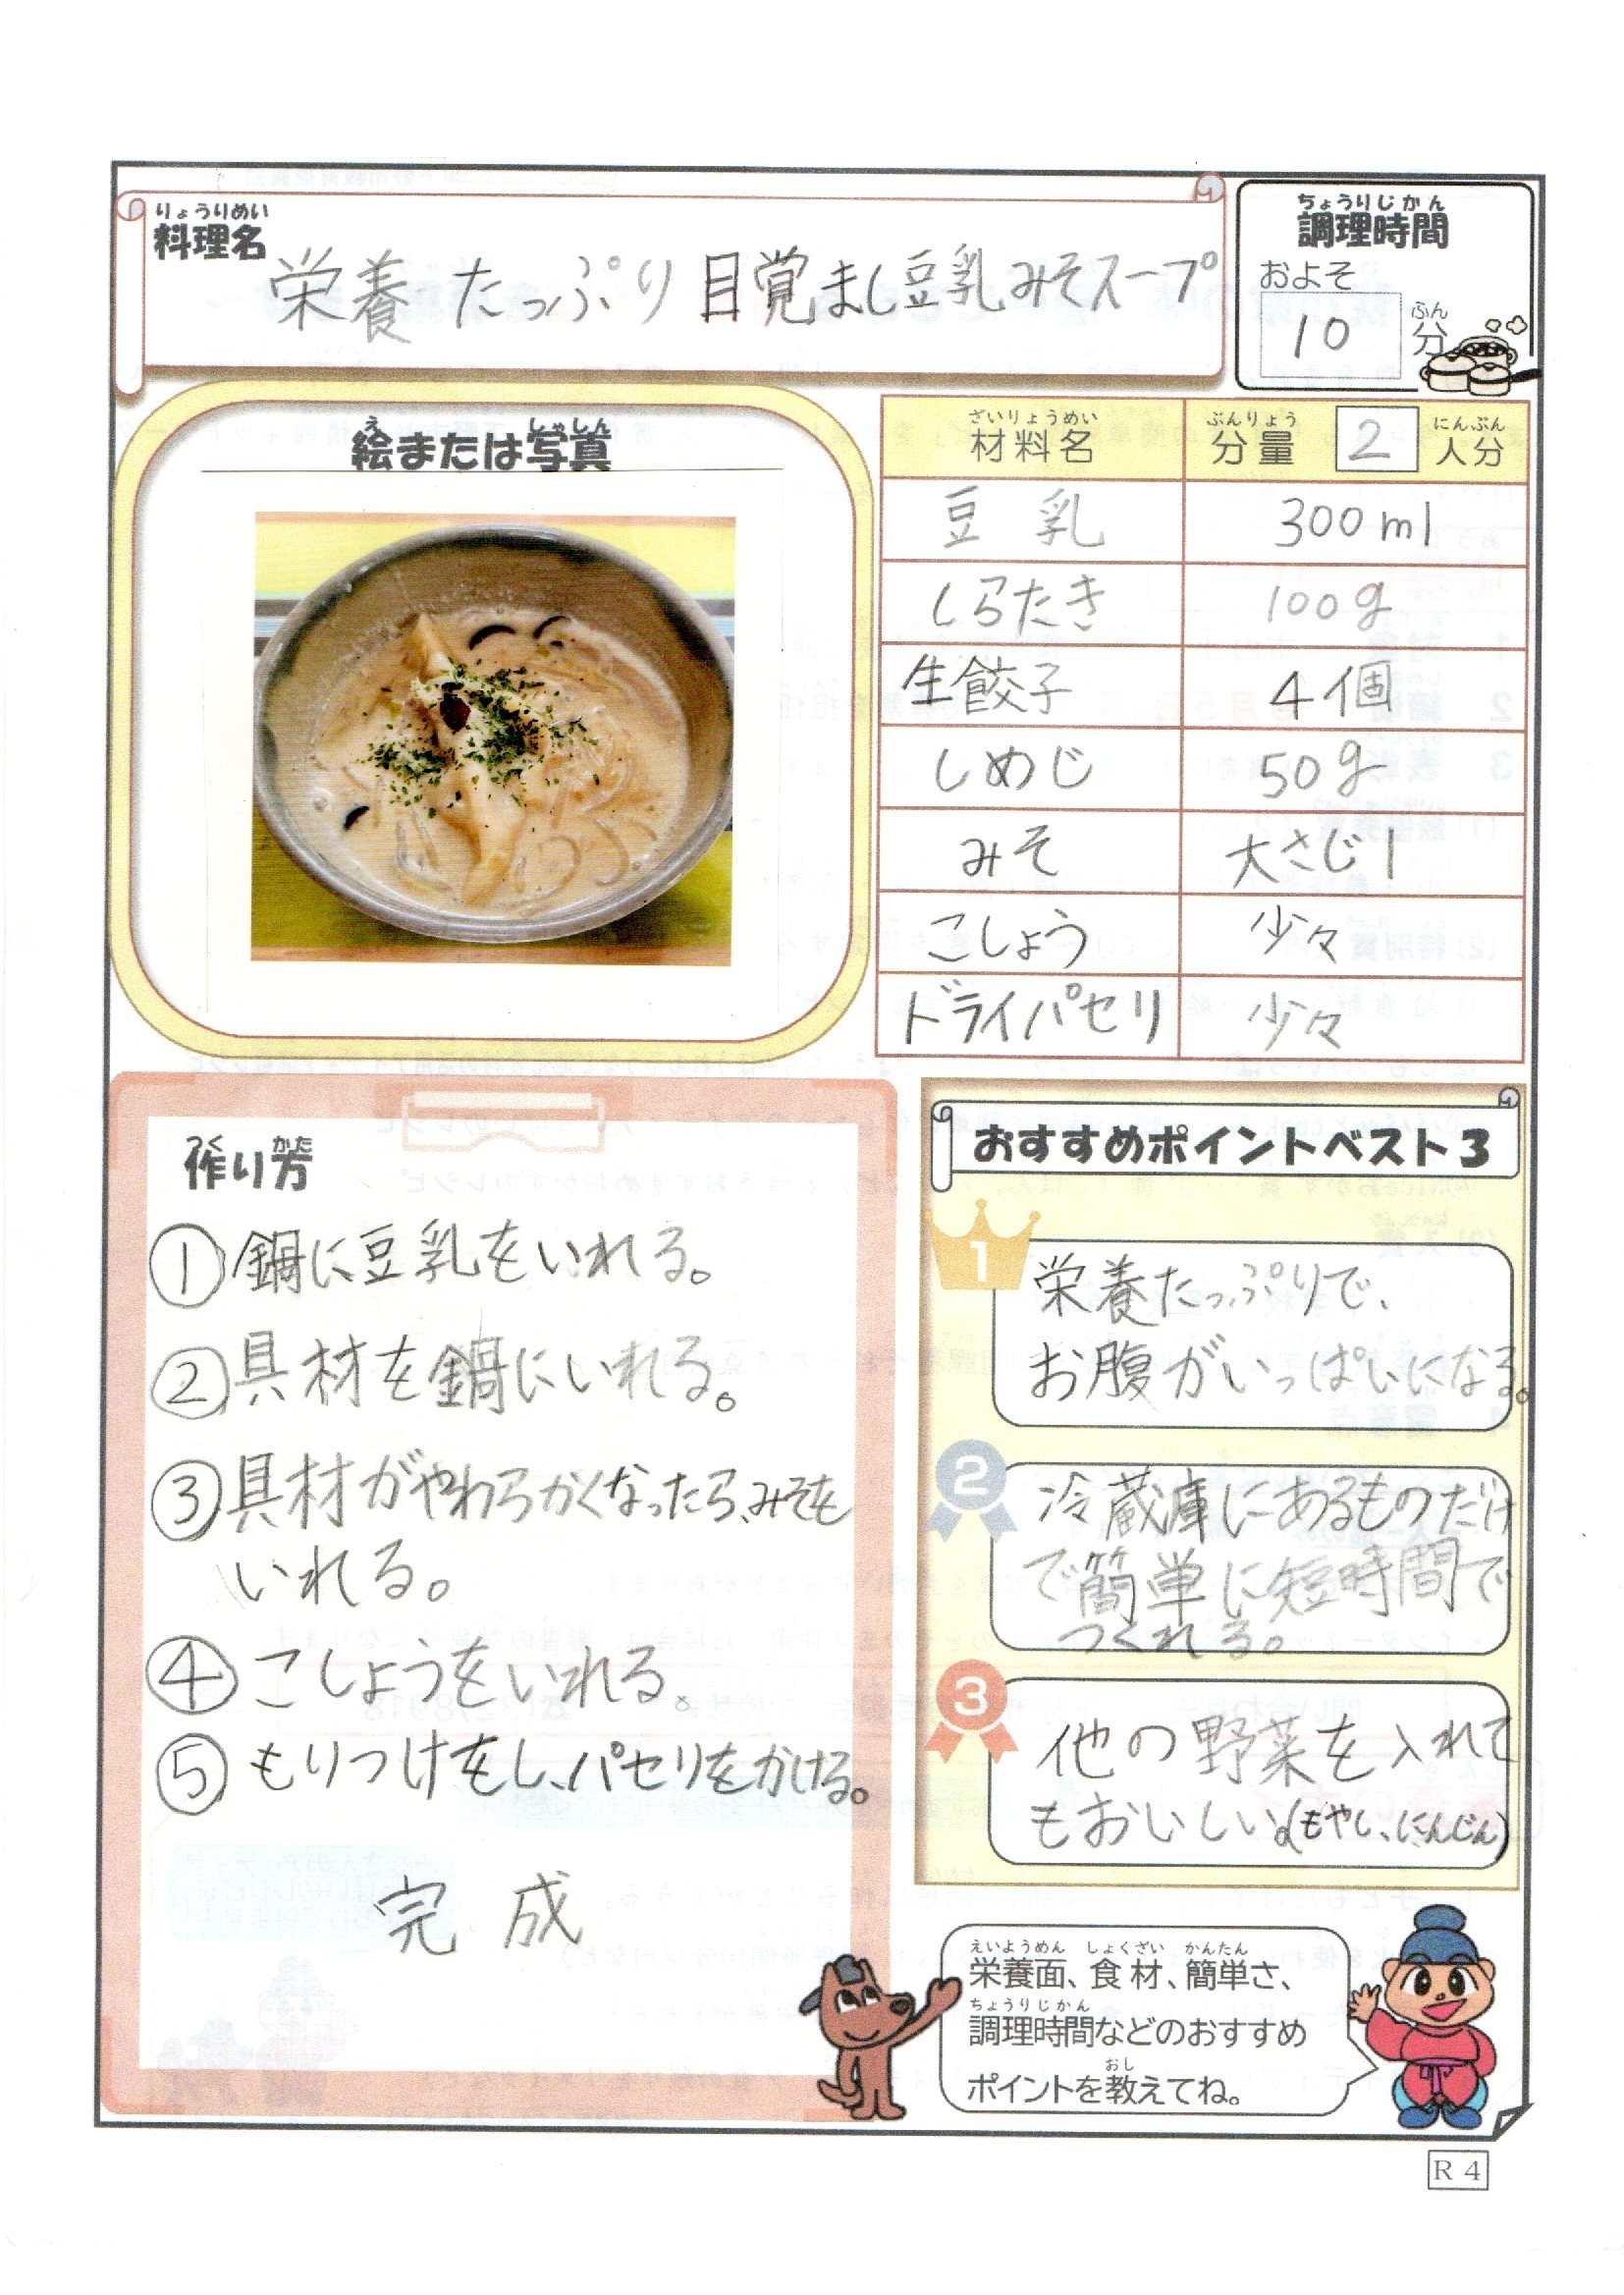 りょうりめい
料理名
栄養たっぷり目覚まし豆乳みそスープ
ちょうりじかん
調理時間
およそ
10 分
ふん
え しゃしん
絵または写真
ざいりょうめい ぶんりょう にんぶん
材料名 分量 2 人分
豆乳 300ml
しらたき 100g
生餃子 4個
しめじ 50g
みそ 大さじ1
こしょう 少々
ドライパセリ 少々
つく かた
作り方
①鍋に豆乳をいれる。
②具材を鍋にいれる。
③具材がやわらかくなったら、みそを
いれる。
④こしょうをいれる。
⑤もりつけをし、パセリをかける。
完成
おすすめポイントベスト3
1
栄養たっぷりで、
お腹がいっぱいになる。
2
冷蔵庫にあるものだけ
で簡単に短時間で
つくれる。
3
他の野菜を入れて
もおいしい。(もやし、にんじん)
えいようめん しょくざい かんたん
栄養面、食材、簡単さ、
ちょうりじかん
調理時間などのおすすめ
おし
ポイントを教えてね。
R4